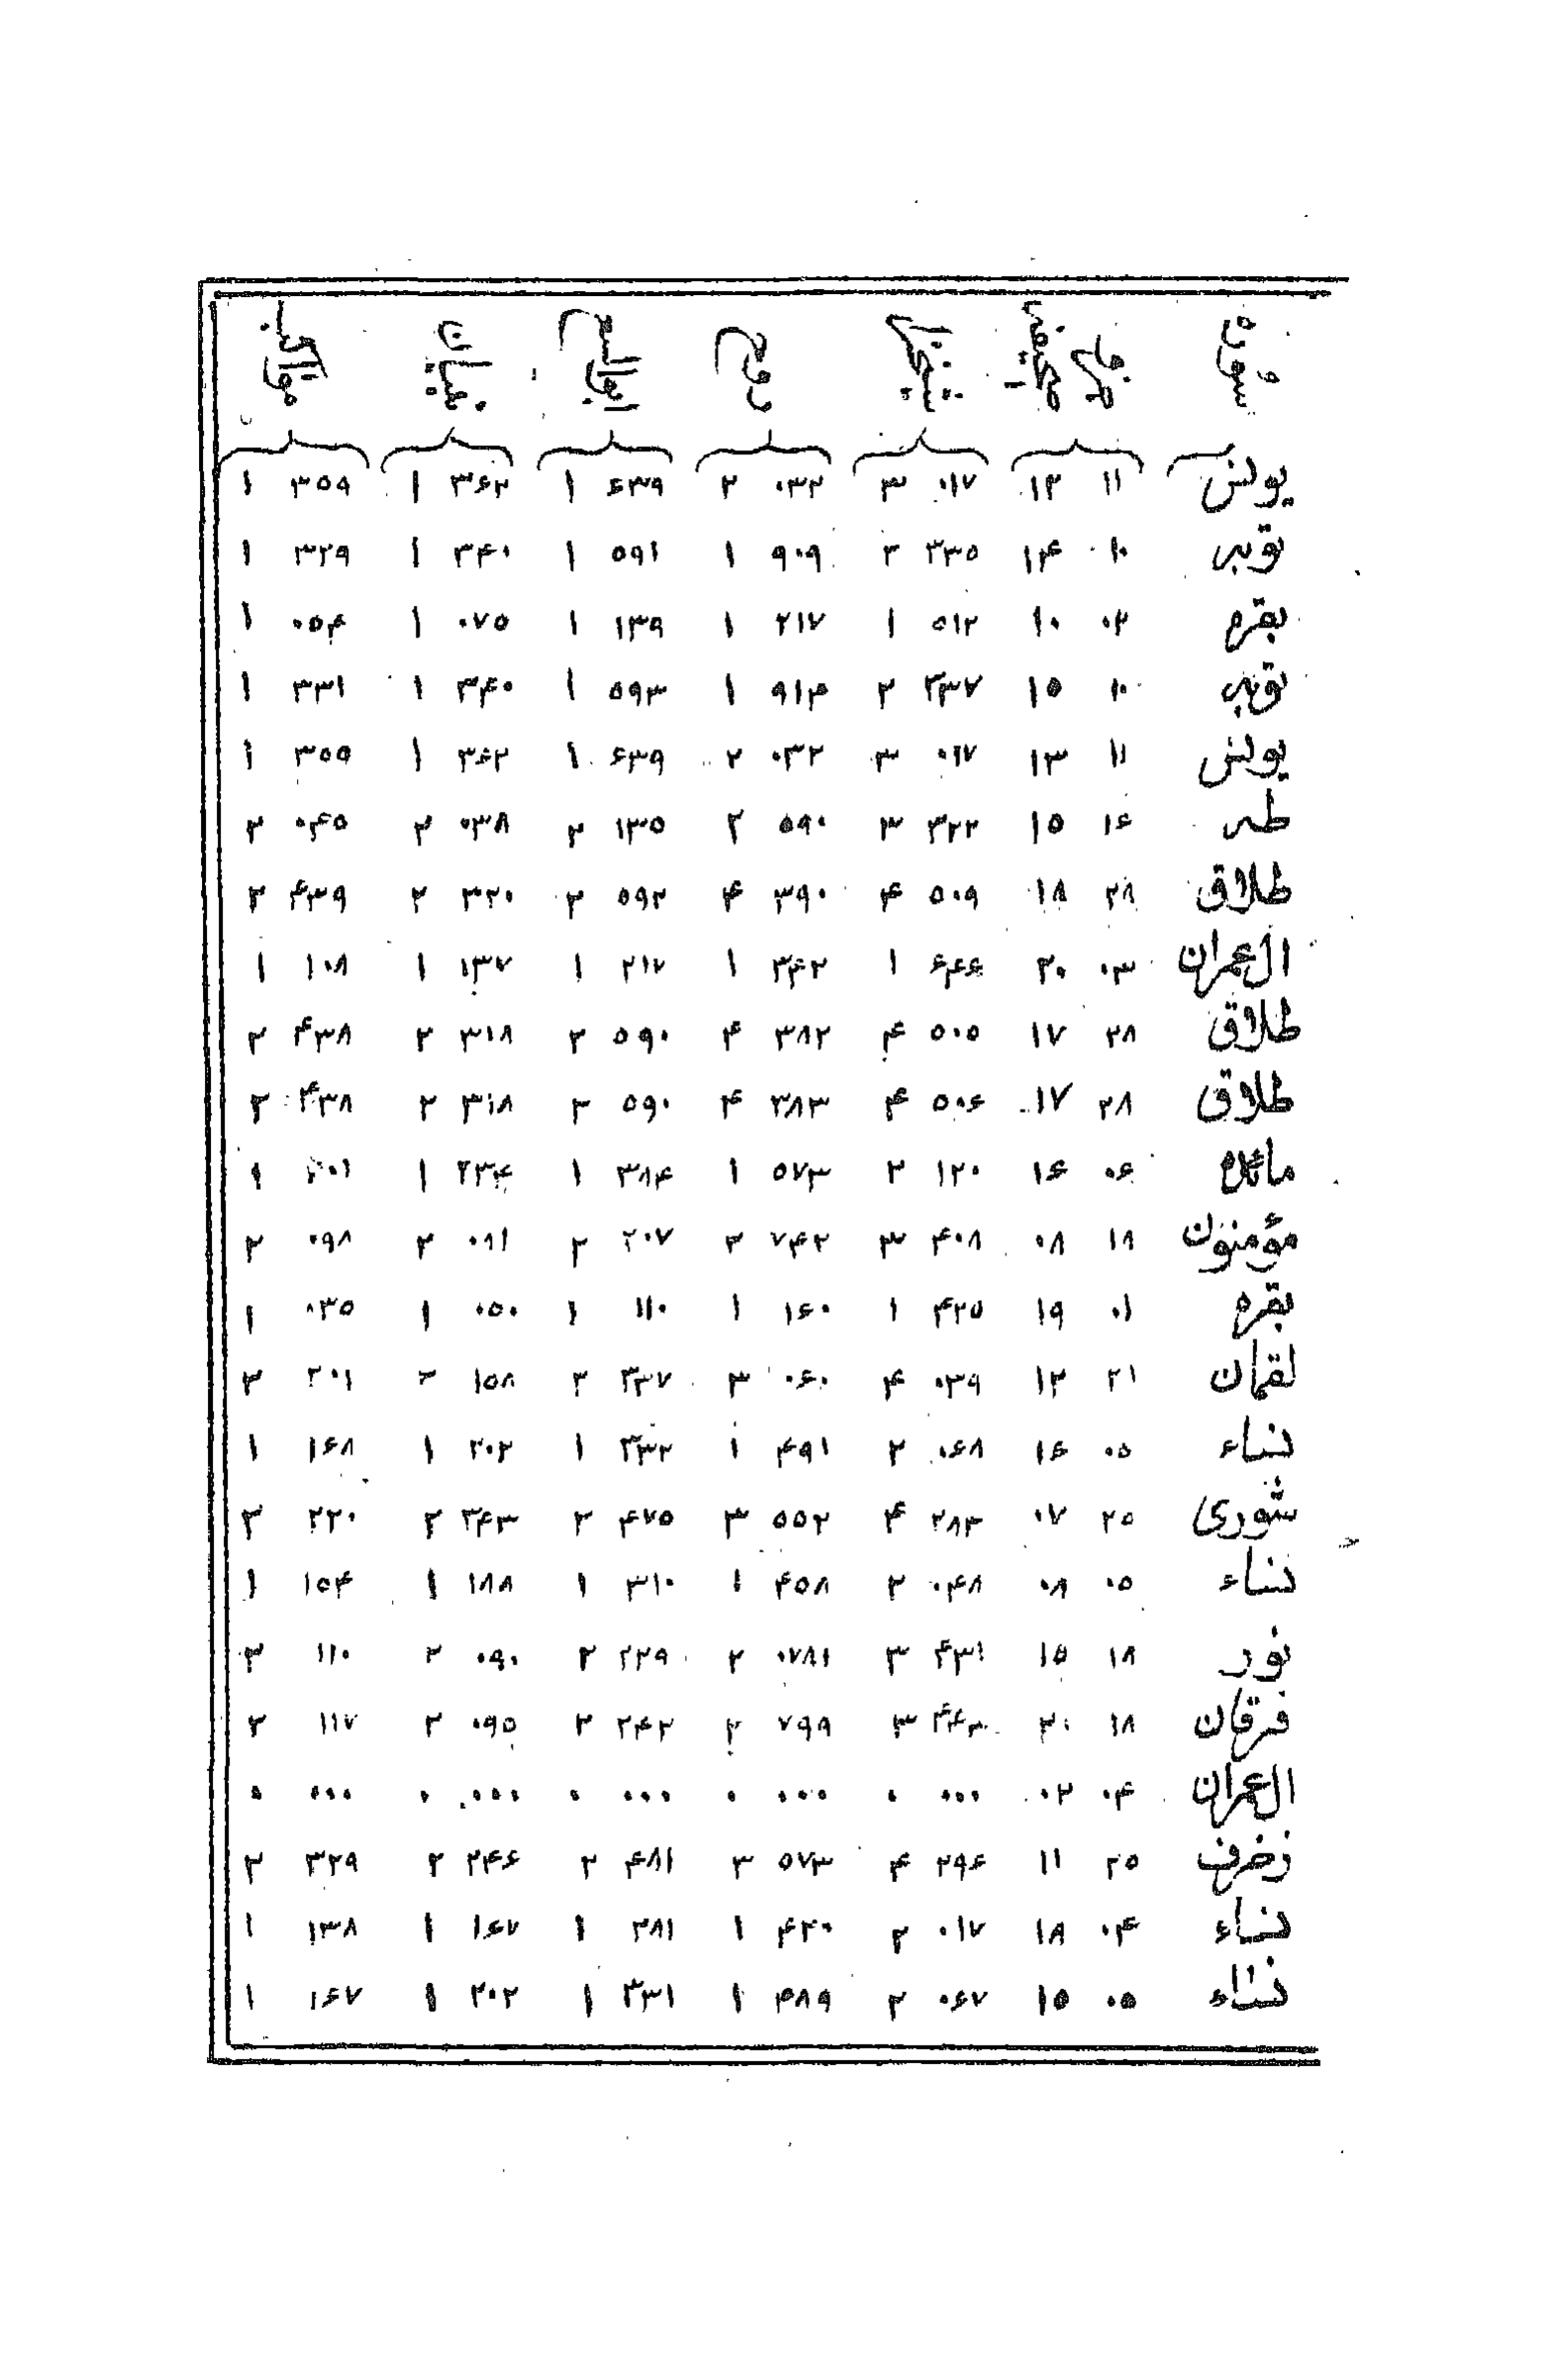 سوره
یونس ۱۱ ۱۳ ۰۱۷ ۳ ۰۳۲ ۲ ۶۳۹ ۱ ۳۶۲ ۱ ۳۵۹ ۱
توبه ۱۰ ۱۴ ۳۳۵ ۲ ۹۰۹ ۱ ۵۹۱ ۱ ۳۴۰ ۱ ۳۲۹ ۱
بقره ۰۲ ۱۰ ۵۱۲ ۱ ۲۱۷ ۱ ۱۳۹ ۱ ۰۷۵ ۱ ۰۵۴ ۱
توبه ۱۰ ۱۵ ۳۳۷ ۲ ۹۱۴ ۱ ۵۹۳ ۱ ۳۴۰ ۱ ۳۳۱ ۱
یونس ۱۱ ۱۳ ۰۱۷ ۳ ۰۳۲ ۲ ۶۳۹ ۱ ۳۶۲ ۱ ۳۵۹ ۱
طه ۱۶ ۱۵ ۳۲۲ ۳ ۵۹۰ ۲ ۱۳۵ ۲ ۰۳۸ ۲ ۰۴۵ ۲
طلاق ۲۸ ۱۸ ۵۰۹ ۴ ۳۹۰ ۴ ۵۹۲ ۲ ۳۲۰ ۲ ۴۳۹ ۲
ال عمران ۰۳ ۲۰ ۶۴۶ ۱ ۳۴۲ ۱ ۲۱۷ ۱ ۱۳۷ ۱ ۱۰۸ ۱
طلاق ۲۸ ۱۷ ۵۰۵ ۴ ۳۸۲ ۴ ۵۹۰ ۲ ۳۱۸ ۲ ۴۳۸ ۲
طلاق ۲۸ ۱۷ ۵۰۶ ۴ ۳۸۳ ۴ ۵۹۰ ۲ ۳۱۸ ۲ ۴۳۸ ۲
مائده ۰۶ ۱۶ ۱۲۰ ۲ ۵۷۳ ۱ ۳۸۴ ۱ ۲۳۴ ۱ ۲۰۱ ۱
مؤمنون ۱۸ ۰۸ ۴۰۸ ۳ ۷۴۲ ۲ ۲۰۷ ۲ ۰۸۱ ۲ ۰۹۸ ۲
بقره ۰۱ ۱۹ ۴۲۵ ۱ ۱۶۰ ۱ ۱۱۰ ۱ ۰۵۰ ۱ ۰۳۵ ۱
لقمان ۲۱ ۱۲ ۰۳۹ ۴ ۰۶۰ ۳ ۳۳۷ ۲ ۱۵۸ ۲ ۲۰۱ ۲
نساء ۰۵ ۱۶ ۰۶۸ ۲ ۴۹۱ ۱ ۳۳۲ ۱ ۲۰۲ ۱ ۱۶۸ ۱
شوری ۲۵ ۰۷ ۲۸۳ ۴ ۵۵۲ ۳ ۴۷۵ ۲ ۲۴۳ ۲ ۲۲۰ ۲
نساء ۰۵ ۰۸ ۰۴۸ ۲ ۴۵۸ ۱ ۳۱۰ ۱ ۱۸۸ ۱ ۱۵۴ ۱
نور ۱۸ ۱۵ ۴۳۱ ۳ ۰۷۸۱ ۲ ۲۲۹ ۲ ۰۹۰ ۲ ۱۱۰ ۲
فرقان ۱۸ ۲۰ ۴۴۳ ۳ ۷۹۹ ۲ ۲۴۲ ۲ ۰۹۵ ۲ ۱۱۷ ۲
ال عمران ۰۴ ۰۲ ۰۰۰ ۰ ۰۰۰ ۰ ۰۰۰ ۰ ۰۰۰ ۰ ۰۰۰ ۰
زخرف ۲۵ ۱۱ ۲۹۶ ۴ ۵۷۳ ۳ ۴۸۱ ۲ ۲۴۶ ۲ ۳۲۹ ۲
نساء ۰۴ ۱۸ ۰۱۷ ۲ ۴۲۰ ۱ ۲۸۱ ۱ ۱۶۷ ۱ ۱۳۸ ۱
نساء ۰۵ ۱۵ ۰۶۷ ۲ ۴۸۹ ۱ ۳۳۱ ۱ ۲۰۲ ۱ ۱۶۷ ۱